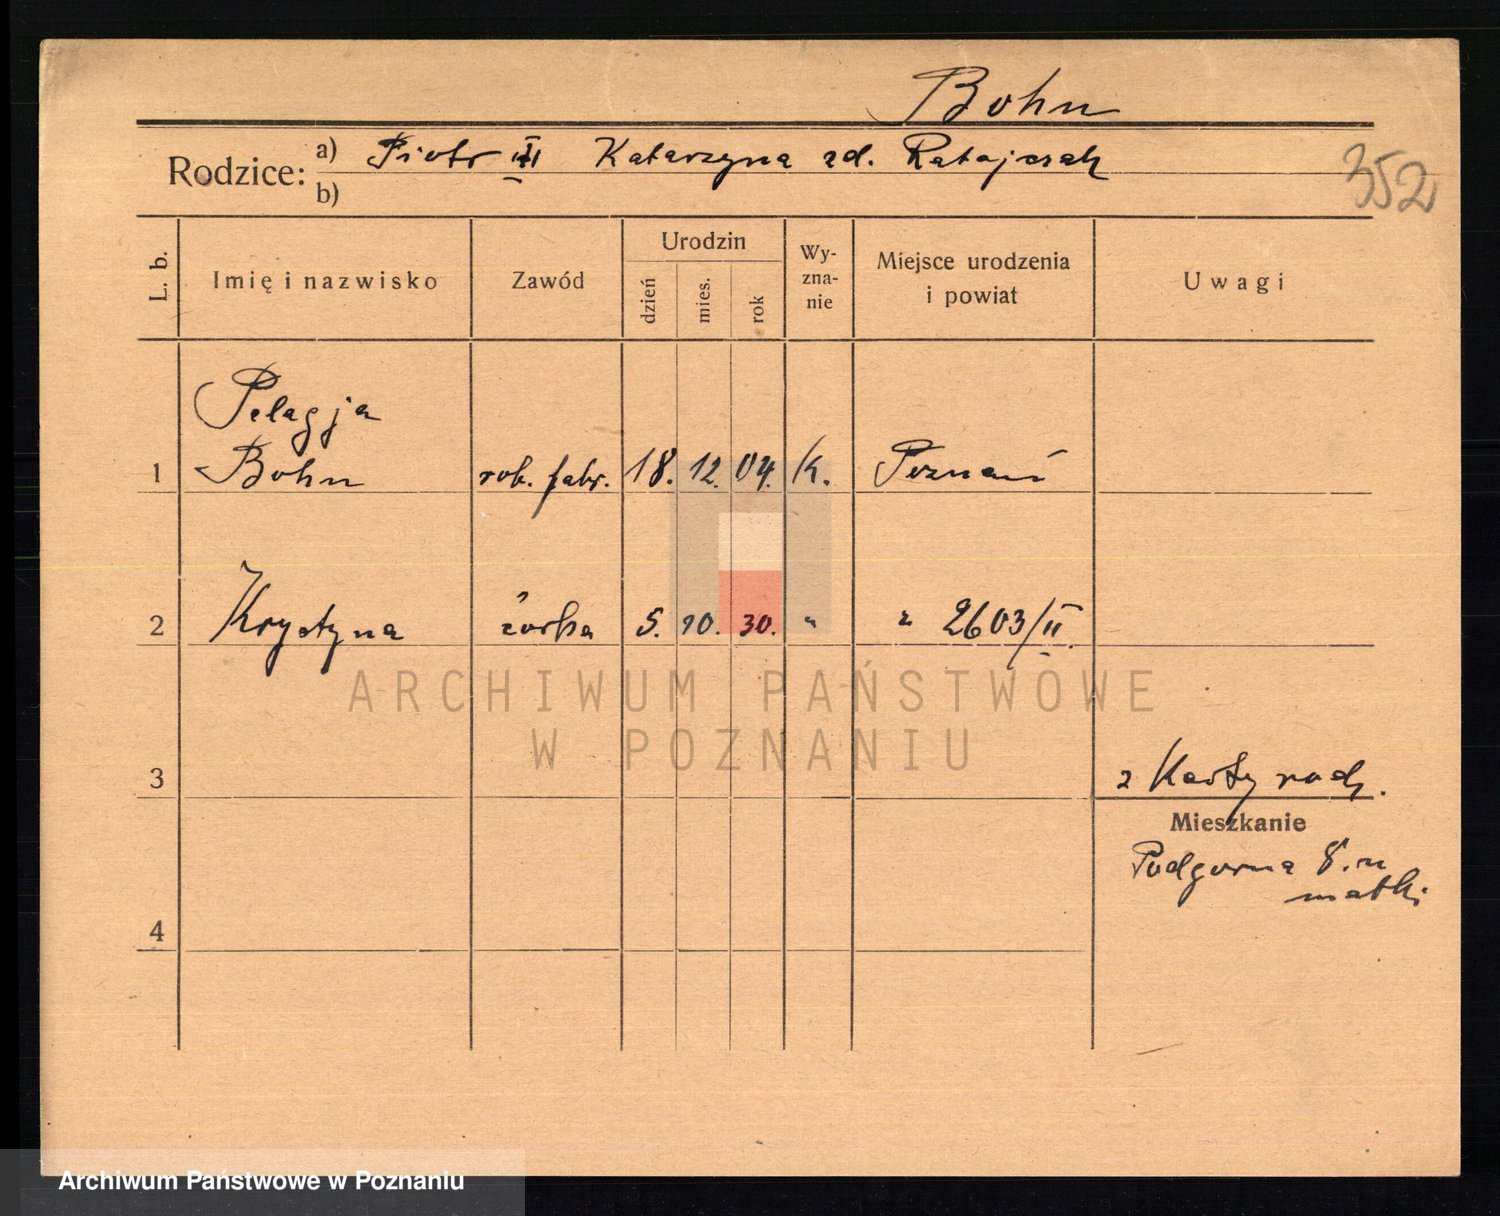 Bohn
Rodzice: a) Piotr III Katarzyna zd. Ratajczak
b)
352
L. b. Imię i nazwisko Zawód Urodzin dzień mies. rok Wy-zna-nie Miejsce urodzenia i powiat Uwagi
Pelagja
1 Bohn rob. fabr. 18. 12. 04. K. Poznań
2 Krystyna córka 5. 10. 30. " 2603/II.
ARCHIWUM PAŃSTWOWE
W POZNANIU
3 z Karty rodz.
Mieszkanie
Podgorna 8. u
matki
4
Archiwum Państwowe w Poznaniu